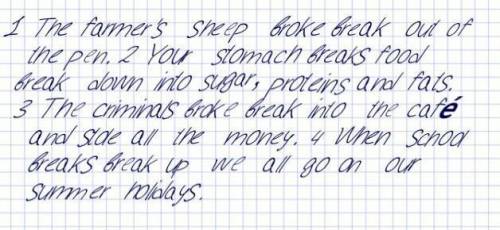 1 The farmer's sheep broke break out of
the pen. 2 Your stomach breaks food
break down into sugar, proteins and fats.
3 The criminals broke break into the café
and stole all the money. 4 When school
breaks break up we all go on our
summer holidays.